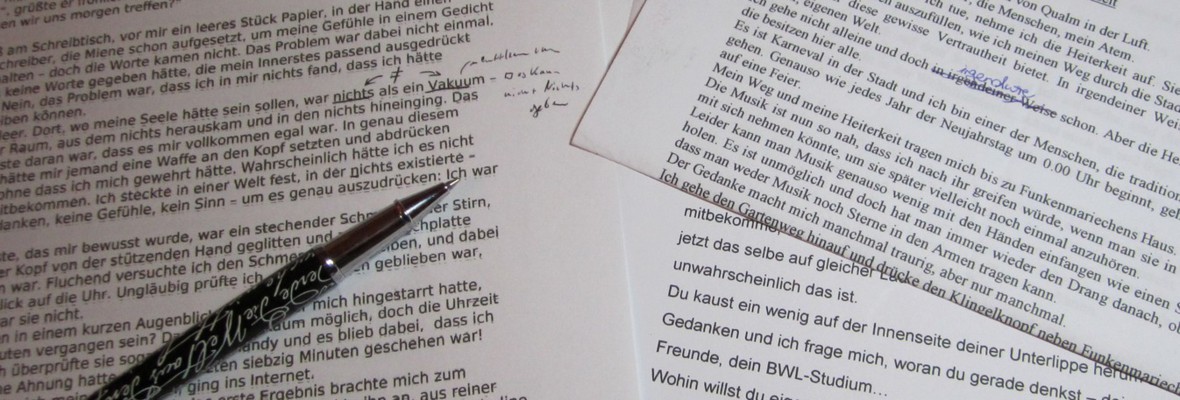 ", grüßte er
en wir uns morgen treffen?"
am Schreibtisch, vor mir ein leeres Stück Papier, in der Hand einen
chreiber, die Miene schon aufgesetzt, um meine Gefühle in einem Gedicht
alten - doch die Worte kamen nicht. Das Problem war dabei nicht einmal,
keine Worte gegeben hätte, die mein Innerstes passend ausgedrückt
Nein, das Problem war, dass ich in mir nichts fand, dass ich hätte
iben können.
leer. Dort, wo meine Seele hätte sein sollen, war nichts als ein Vakuum –
r Raum, aus dem nichts herauskam und in den nichts hineinging. Das
ste daran war, dass es mir vollkommen egal war. In genau diesem
hätte mir jemand eine Waffe an den Kopf setzten und abdrücken
ohne dass ich mich gewehrt hätte. Wahrscheinlich hätte ich es nicht
itbekommen. Ich steckte in einer Welt fest, in der nichts existierte –
danken, keine Gefühle, kein Sinn – um es genau auszudrücken: Ich war
ste, das mir bewusst wurde, war ein stechender Schm er Stirn,
er Kopf von der stützenden Hand geglitten und chplatte
n war. Fluchend versuchte ich den Schme ben, und dabei
lick auf die Uhr. Ungläubig prüfte ich n geblieben war,
ar sie nicht.
n in einem kurzen Augenblic mich hingestarrt hatte,
uten vergangen sein? D aum möglich, doch die Uhrzeit
h überprüfte sie sog andy und es blieb dabei, dass ich
ne Ahnung hatte ten siebzig Minuten geschehen war!
ging ins Internet.
erste Ergebnis brachte mich zum
an, aus reiner
von Qualm in der Luft.
die Menschen, mein Atem.
ich tue, nehme ich die Heiterkeit auf. Sie
auszufüllen, wie ich meinen Weg durch die Stad
eigenen Weg. diese gewisse Vertrautheit bietet. In irgendeiner Wei
ch gehe nicht alleine und doch in irgendeiner Weise schon. Aber die He
irgendwie
die besitzen hier alle.
Es ist Karneval in der Stadt und ich bin einer der Menschen, die tradition
gehen. Genauso wie jedes Jahr der Neujahrstag um 0.00 Uhr beginnt, geh
auf eine Feier.
Mein Weg und meine Heiterkeit tragen mich bis zu Funkenmariechens Haus.
Die Musik ist nun so nah, dass ich nach ihr greifen würde, wenn man sie in
mit sich nehmen könnte, um sie später vielleicht noch einmal anzuhören.
Leider kann man Musik genauso wenig mit den Händen einfangen wie einen S
holen. Es ist unmöglich und doch hat man immer wieder den Drang danach, ob
dass man weder Musik noch Sterne in den Armen tragen kann.
Der Gedanke macht mich manchmal traurig, aber nur manchmal.
Ich gehe den Gartenweg hinauf und drücke den Klingelknopf neben Funkenmariech
mitbekomme
jetzt das selbe auf gleicher
unwahrscheinlich das ist.
Du kaust ein wenig auf der Innenseite deiner Unterlippe herum
Gedanken und ich frage mich, woran du gerade denkst –
Freunde, dein BWL-Studium…
Wohin willst du